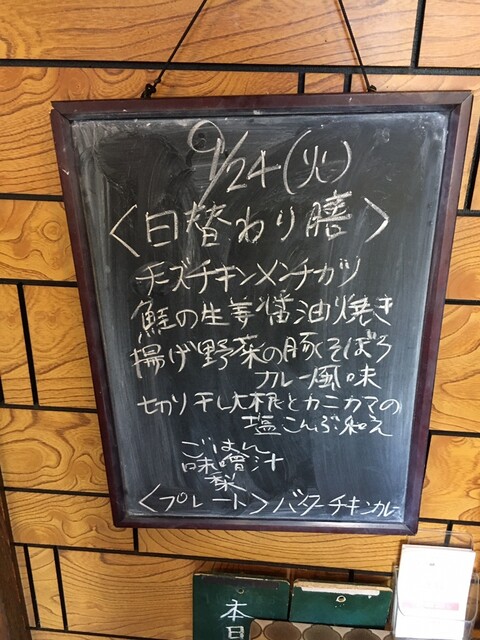 9/24(火)
〈日替わり膳〉
チーズチキンメンチカツ
鮭の生姜醤油焼き
揚げ野菜の豚そぼろ
カレー風味
切り干し大根とカニカマの
塩こんぶ和え
ごはん
味噌汁
梨
〈プレート〉バターチキンカレー
本日